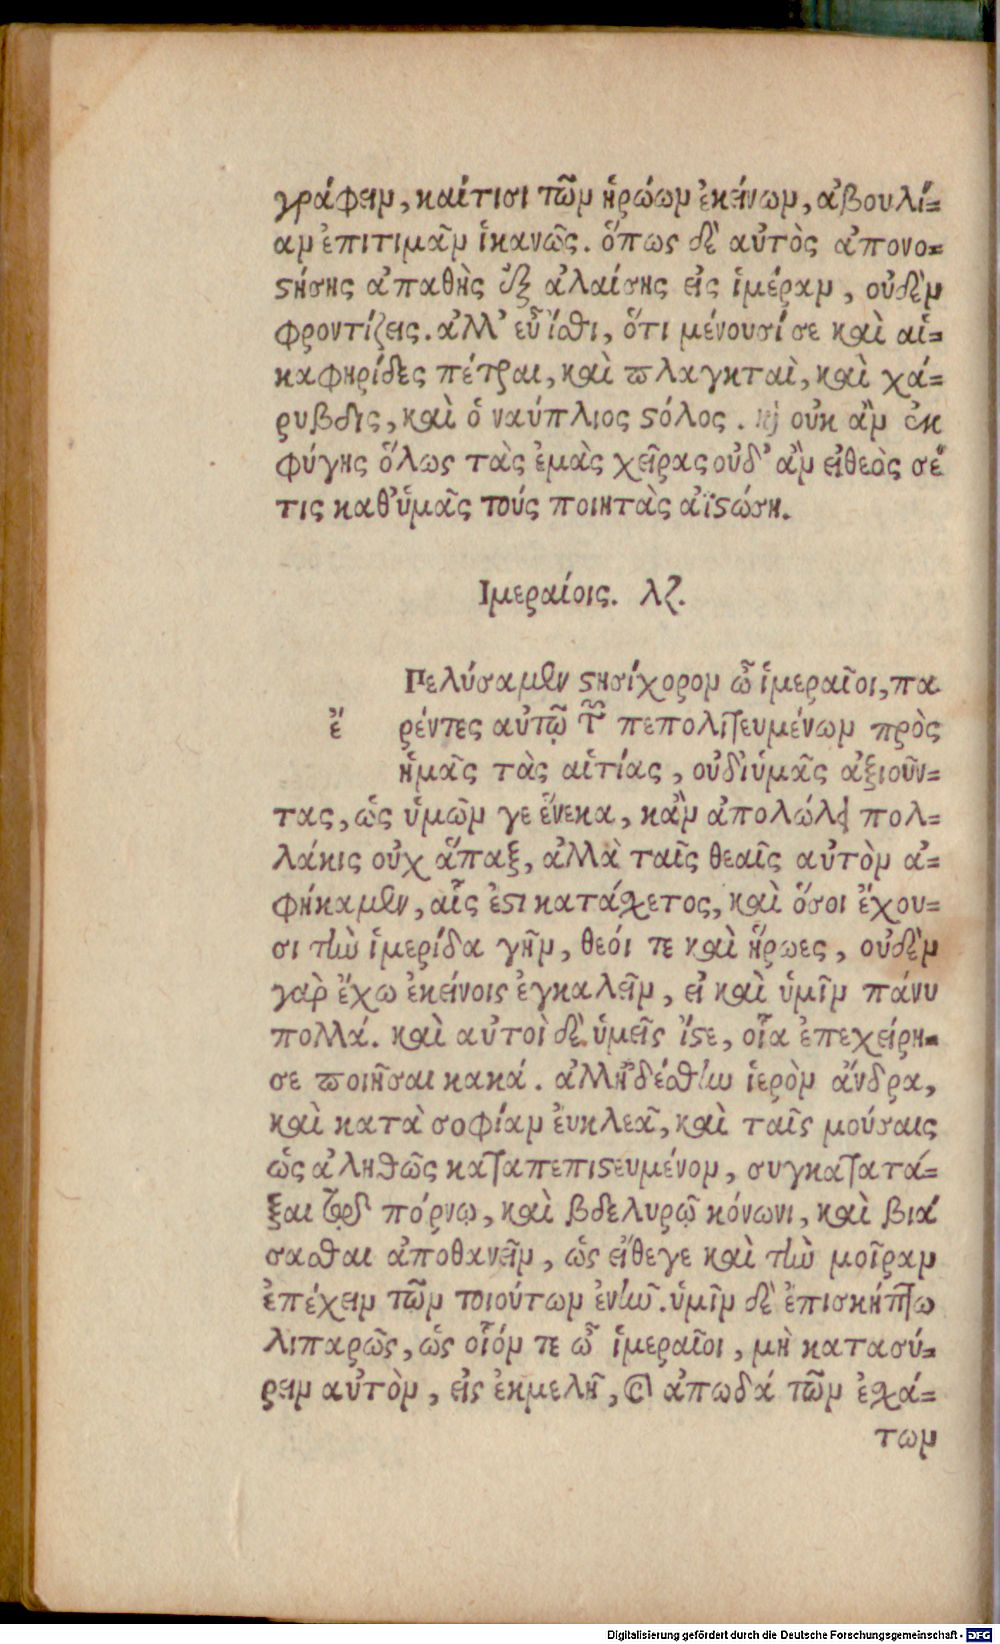 γράφειν, καίτισι τῶν ἡρώων ἐκείνων, ἀβουλί-
αν ἐπιτιμᾶν ἱκανῶς. ὅπως δὲ αὐτὸς ἀπονο-
στήσῃς ἀπαθὴς ἐξ ἀλαίσης εἰς ἱμέραν, οὐδὲν
φροντίζεις. ἀλλ' εὖ ἴσθι, ὅτι μένουσί σε καὶ αἱ-
καφηρίδες πέτραι, καὶ πλαγκταὶ, καὶ χά-
ρυβδις, καὶ ὁ ναύπλιος στόλος. καὶ οὐκ ἂν ἐκ
φύγῃς ὅλως τὰς ἐμὰς χεῖρας οὐδ' ἂν εἰθεὸς σέ
τις καθ' ὑμᾶς τοὺς ποιητὰς ἀϊστώσῃ.
Ιμεραίοις. λζ.
Πελύσαμεν στησίχορον ὦ ἱμεραῖοι, πα
ἐ ρέντες αὐτῷ τῶν πεπολιτευμένων πρὸς
ἡμᾶς τὰς αἰτίας, οὐδι' ὑμᾶς ἀξιοῦν-
τας, ὡς ὑμῶν γε ἕνεκα, κἂν ἀπολώλει πολ-
λάκις οὐχ ἅπαξ, ἀλλὰ ταῖς θεαῖς αὐτὸν ἀ-
φήκαμεν, αἷς ἐστι κατάσχετος, καὶ ὅσοι ἔχου-
σι τὴν ἱμερίδα γῆν, θεοί τε καὶ ἥρωες, οὐδὲν
γὰρ ἔχω ἐκείνοις ἐγκαλεῖν, εἰ καὶ ὑμῖν πάνυ
πολλά. καὶ αὐτοὶ δὲ ὑμεῖς ἴστε, οἷα ἐπεχείρη-
σε ποιῆσαι κακά. ἀλλ' ᾐδέσθην ἱερὸν ἄνδρα,
καὶ κατὰ σοφίαν ἐυκλεᾶ, καὶ ταῖς μούσαις
ὡς ἀληθῶς καταπεπιστευμένον, συγκατατά-
ξαι τῷ πόρνῳ, καὶ βδελυρῷ κόνωνι, καὶ βιά
σασθαι ἀποθανεῖν, ὡς εἴθεγε καὶ τὴν μοῖραν
ἐπέχειν τῶν τοιούτων ἐνῆν. ὑμῖν δὲ ἐπισκήπτω
λιπαρῶς, ὡς οἷόν τε ὦ ἱμεραῖοι, μὴ κατασύ-
ρειν αὐτὸν, εἰς ἐκμελῆ, καὶ ἀπωδά τῶν ἐσχά-
των
Digitalisierung gefördert durch die Deutsche Forschungsgemeinschaft - DFG